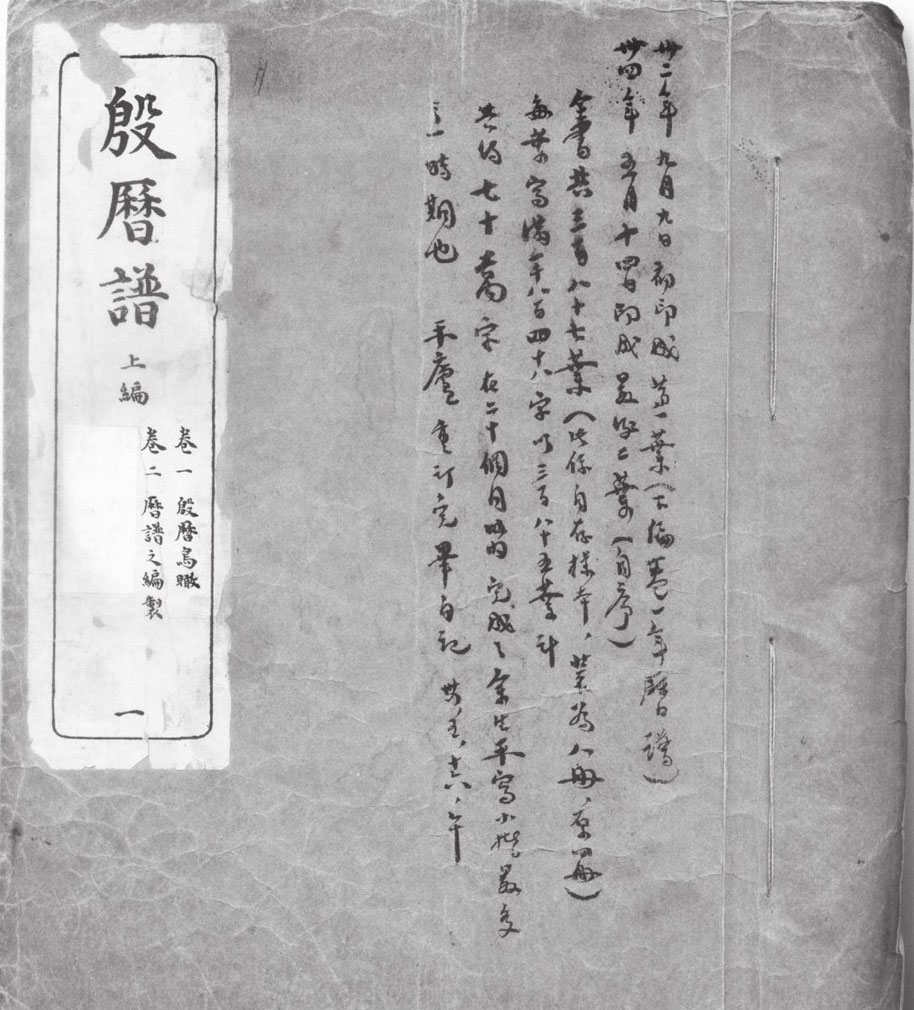 卅二年九月九日初印成第一葉(下編卷一年曆譜)
卅四年五月十四日印成最後二葉(自序)
全書共三百八十七葉(此係自存樣本,業為八冊,原四冊)
每葉寫滿年八百四十八字以三百八十五葉計
共得七十萬字在二十個月以內完成之余生平寫小楷最多
之一時期也 平廬重訂完畢自記 卅、五、十六、午
殷曆譜
上編
卷一 殷曆鳥瞰
卷二 曆譜之編製
一